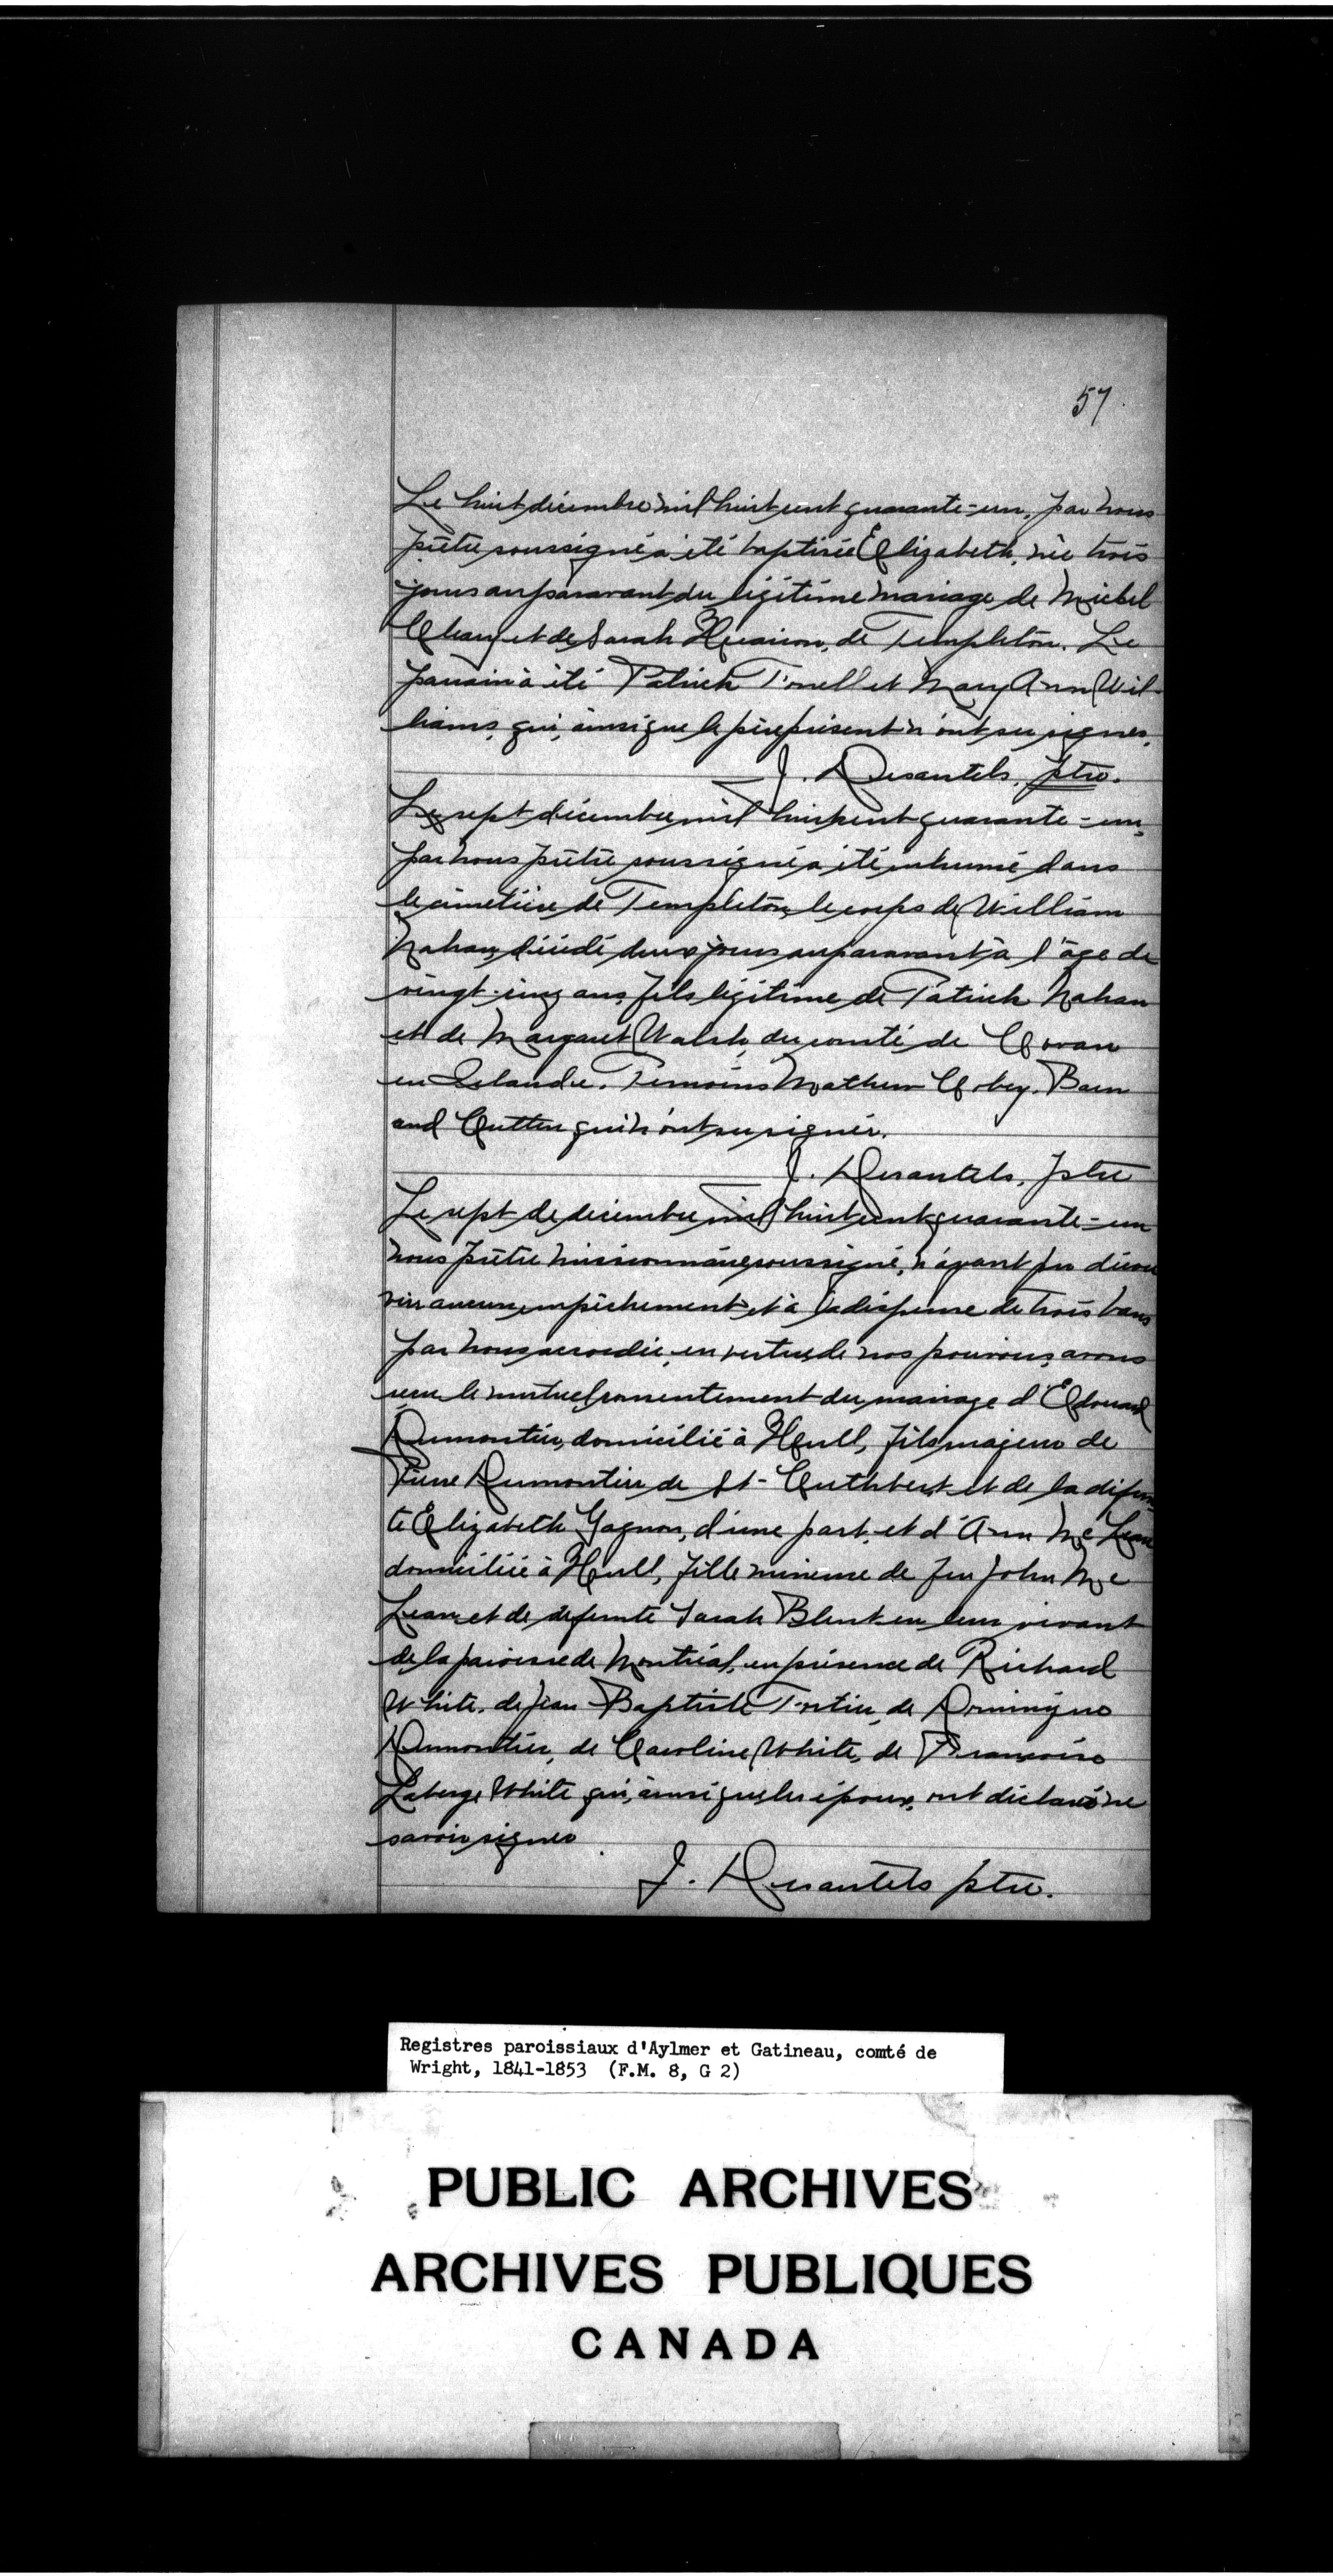 57.
Le huit décembre mil huit cent quarante-un, par nous
prêtre soussigné a été baptisée Elizabeth, née trois
jours auparavant du légitime mariage de Michel
Cleary et de Sarah, de Templeton. Le
parrain a été Patrick et Mary Ann Wil-
liams, qui, ainsi que le père présent n'ont su signer.
J. Desautels, ptre.
Le sept décembre mil huit cent quarante-un,
par nous prêtre soussigné a été inhumé dans
le cimetière de Templeton, le corps de William
Nahan, décédé deux jours auparavant, à l'âge de
vingt-cinq ans, fils légitime de Patrick Nahan
et de Margaret Walsh, du comté de
en Irlande. Témoins Mathew, Bern
ard Cutten qui n'ont su signer.
J. Desautels, ptre
Le sept de décembre mil huit cent quarante-un
nous prêtre missionnaire soussigné, n'ayant pu décou
vrir aucun empêchement et à la dispense de trois bans
par nous accordée, en vertu de nos pouvoirs, avons
reçu le mutuel consentement du mariage d'Edouard
Dumontier, domicilié à Hull, fils majeur de
Pierre Dumontier de St-Cuthbert et de la défun
te Elizabeth Gagnon, d'une part, et d'Ann Mc Lean
domiciliée à Hull, fille mineure de feu John Mc
Lean et de defunte Sarah Blunt en leur vivant
de la paroisse de Montréal, en présence de Richard
White, de Jean-Baptiste Fortin, de Dominique
Dumontier, de Caroline White, de Françoise
Laberge White qui, ainsi que les époux, ont déclaré ne
savoir signer.
J. Desautels ptre.
Registres paroissiaux d'Aylmer et Gatineau, comté de
Wright, 1841-1853 (F.M. 8, G 2)
PUBLIC ARCHIVES
ARCHIVES PUBLIQUES
CANADA